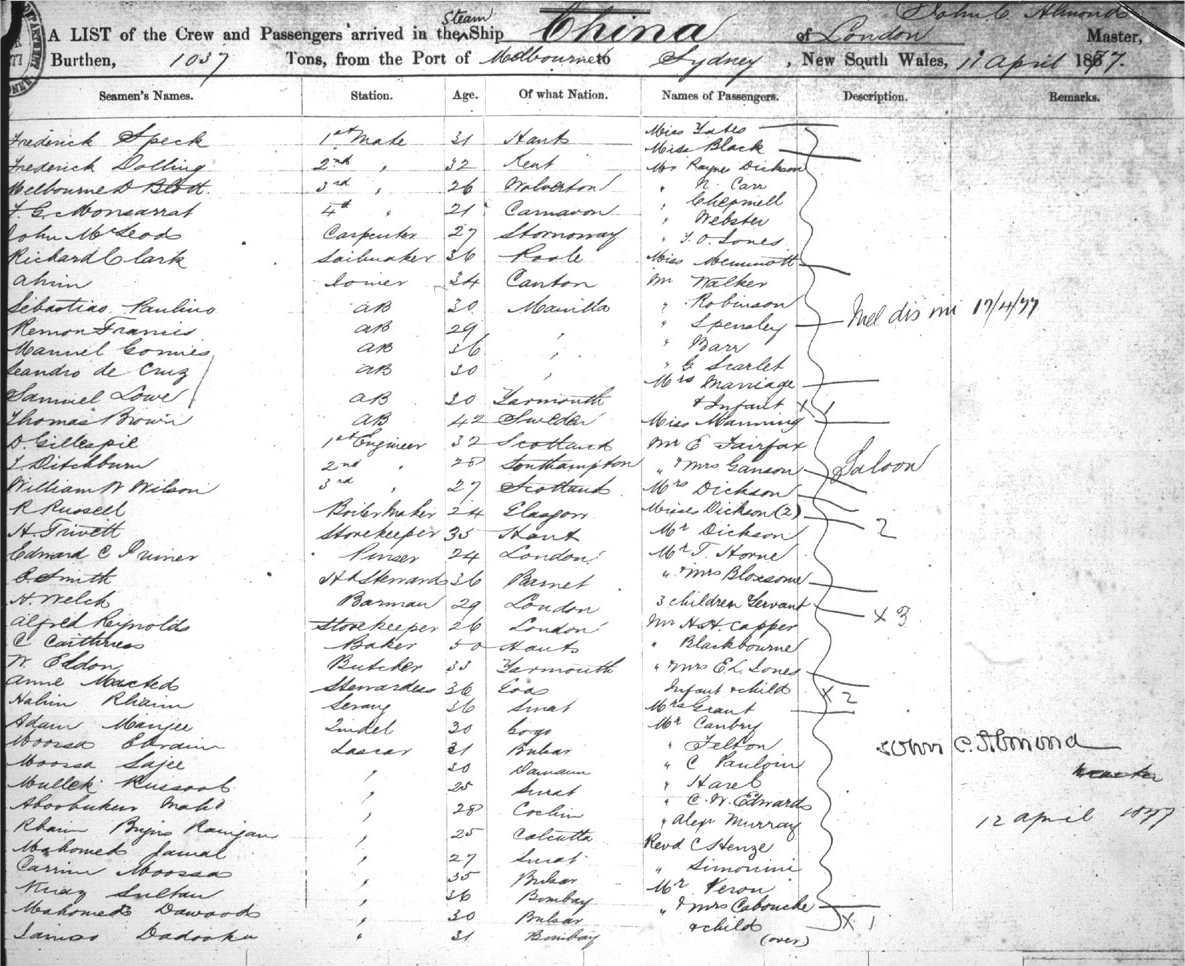 John C. Almond
A LIST of the Crew and Passengers arrived in the Steam Ship China of London Master,
Burthen, 1037 Tons, from the Port of Melbourne to Sydney, New South Wales, 11 April 1877.
Seamen's Names. Station. Age. Of what Nation. Names of Passengers. Description. Remarks.
Frederick Speck 1st Mate 31 Hants Miss Yates
Miss Black
Frederick Dolling 2nd " 32 Kent Mr Rayne Dickson
Melbourne D Blott 3rd " 26 Wolverton " N. Carr
F. C. Monsarrat 4th " 21 Carnavon " Chepmell
" Webster
John McLeod Carpenter 27 Stornoway " T. O. Jones
Richard Clark Sailmaker 36 Poole Miss
Ahim Joiner 34 Canton Mr Walker
Sebastiao Paulino AB 30 Manilla " Robinson
Remon Francis AB 29 " " Spensley Mel dis mi 17/4/77
Manuel Gomies AB 36 " " Barr
Leandro de Cruz AB 30 " " C Scarlet
Mrs Marriage
Samuel Lowe AB 30 Yarmouth & Infant x 1
Thomas Brown AB 42 Sweden Miss Manning
D Gillespie 1st Engineer 32 Scotland Mr E. Fairfax
J Ditchburn 2nd " 28 Southampton " & Mrs Ganson Saloon
William W Wilson 3rd " 27 Scotland Mrs Dickson
R Russell Boilermaker 24 Glasgow Misses Dickson (2) 2
H. Trivett Storekeeper 35 Hant Mr Dickson
Edward C Pruner Purser 24 London Mr T. Horne
C Smith Hd Steward 36 Barnet " & Mrs Bloxsome
H. Welch Barman 29 London 3 children Servant x 3
Alfred Reynolds Storekeeper 26 London Mr H. H. Capper
C Caithness Baker 50 Hants " Blackbourne
W. Eldon Butcher 33 Yarmouth " & Mrs E L Jones
Anne Macted Stewardess 36 Goa Infant & child x 2
Halim Rhaim Serang 36 Surat Mrs Grant
Adam Manjee Tindel 30 Gogo Mr Canbry
Moossa Ebraim Lascar 31 Bulsar " Felton John C. Almond
Moossa Sajee " 30 Damaun " C Pauloin Master
Mulleki Russool " 25 Surat " Hazel
Aboobuker Mahd " 28 Cochin " C. W. Edwards
" Alex Murray 12 April 1877
Rhaim Bujis Ramjan " 25 Calcutta Revd C Henze
Mahomed Jamal " 27 Surat " Simonini
Carrim Moossa " 35 Bulsar Mr Veron
Sultan " 36 Bombay " & Mrs Cabouche
Mahomed Dawood " 30 Bulsar & child x 1
Dadooka " 31 Bombay (over)